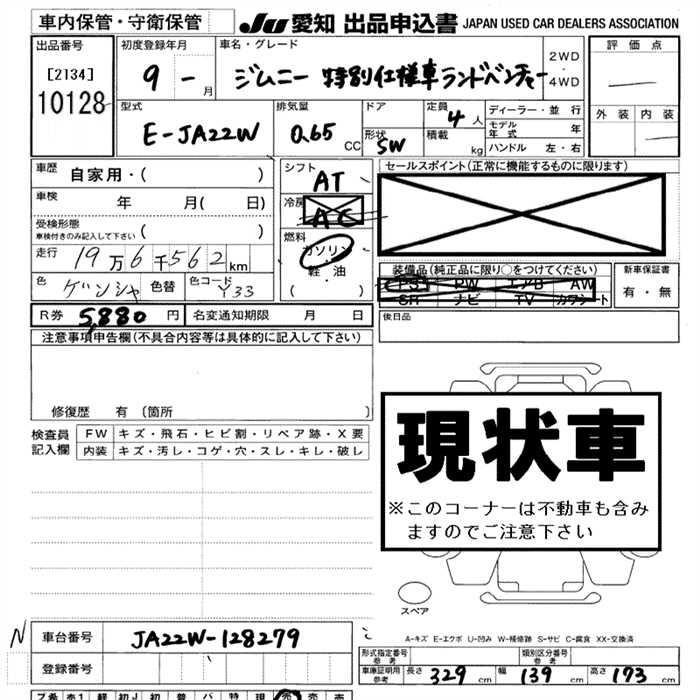 車内保管・守衛保管 JU 愛知 出品申込書 JAPAN USED CAR DEALERS ASSOCIATION
出品番号
[2134]
10128
初度登録年月
9 - 月
車名・グレード
ジムニー 特別仕様車ランドベンチャー
2WD
・
4WD
評価点
外装 内装
型式
E-JA22W
排気量
0.65 CC
ドア
形状
SW
定員
4 人
積載
kg
ディーラー・並行
モデル年式 年
ハンドル 左・右
車歴 自家用・( )
車検 年 月( 日)
受検形態
車検付きのみ記入して下さい ( )
走行 19万6千562 km
色 ゲンシャ 色替 色コード Y33
シフト AT
冷房 AC
燃料
ガソリン
軽・油
( )
セールスポイント(正常に機能するものに限ります)
装備品(純正品に限り○をつけてください)
PS PW エアB AW
SR ナビ TV カワシート
新車保証書
有・無
R券 5,880 円 名変通知期限 月 日
後日品
注意事項申告欄(不具合内容等は具体的に記入して下さい)
修復歴 有〔箇所 〕
検査員
記入欄
FW キズ・飛石・ヒビ割・リペア跡・X要
内装 キズ・汚レ・コゲ・穴・スレ・キレ・破レ
現状車
※このコーナーは不動車も含み
ますのでご注意下さい
スペア
A-キズ E-エクボ U-凹み W-補修跡 S-サビ C-腐食 XX-交換済
N 車台番号 JA22W-128279
登録番号
形式指定番号
参考
類別区分番号
参考
車庫証明用
参考
長さ 329 cm 幅 139 cm 高さ 173 cm